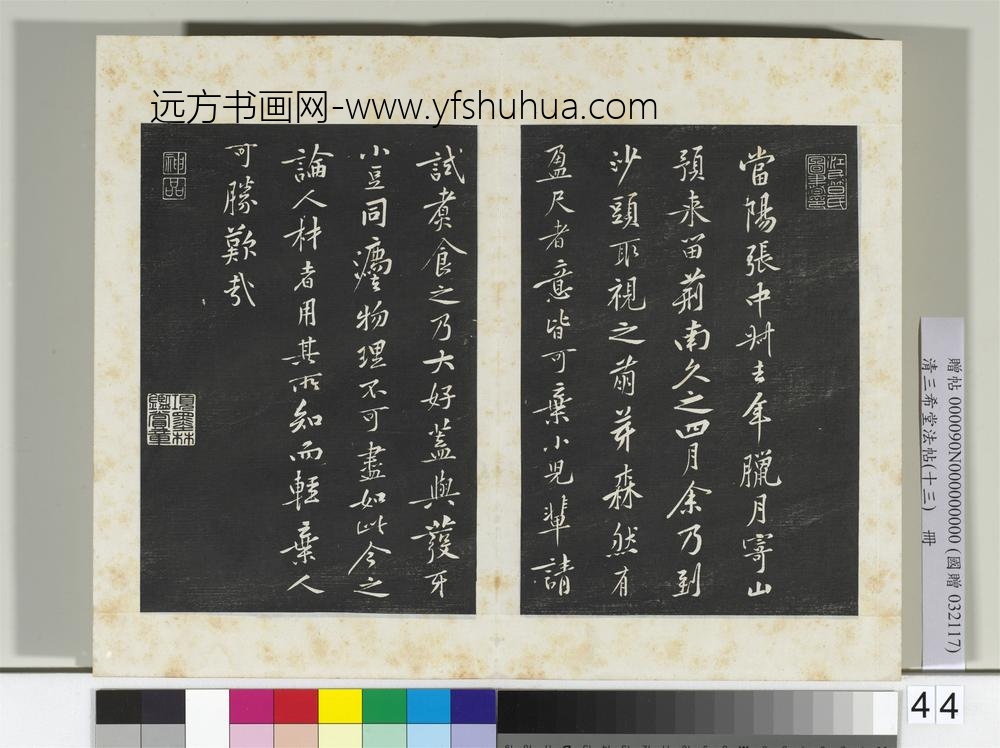 远方书画网-www.yfshuhua.com
江上笪氏圖書印
當陽張中叔去年臘月寄山
預來留荊南久之四月余乃到
沙頭取視之萌芽森然有
盈尺者意皆可棄小兒輩請
試煮食之乃大好蓋與發牙
小豆同灋物理不可盡如此今之
論人材者用其所知而輕棄人
可勝歎哉
神品
項墨林鑑賞章
贈帖 000090N000000000 (國贈 032117)
清三希堂法帖(十三) 冊
44